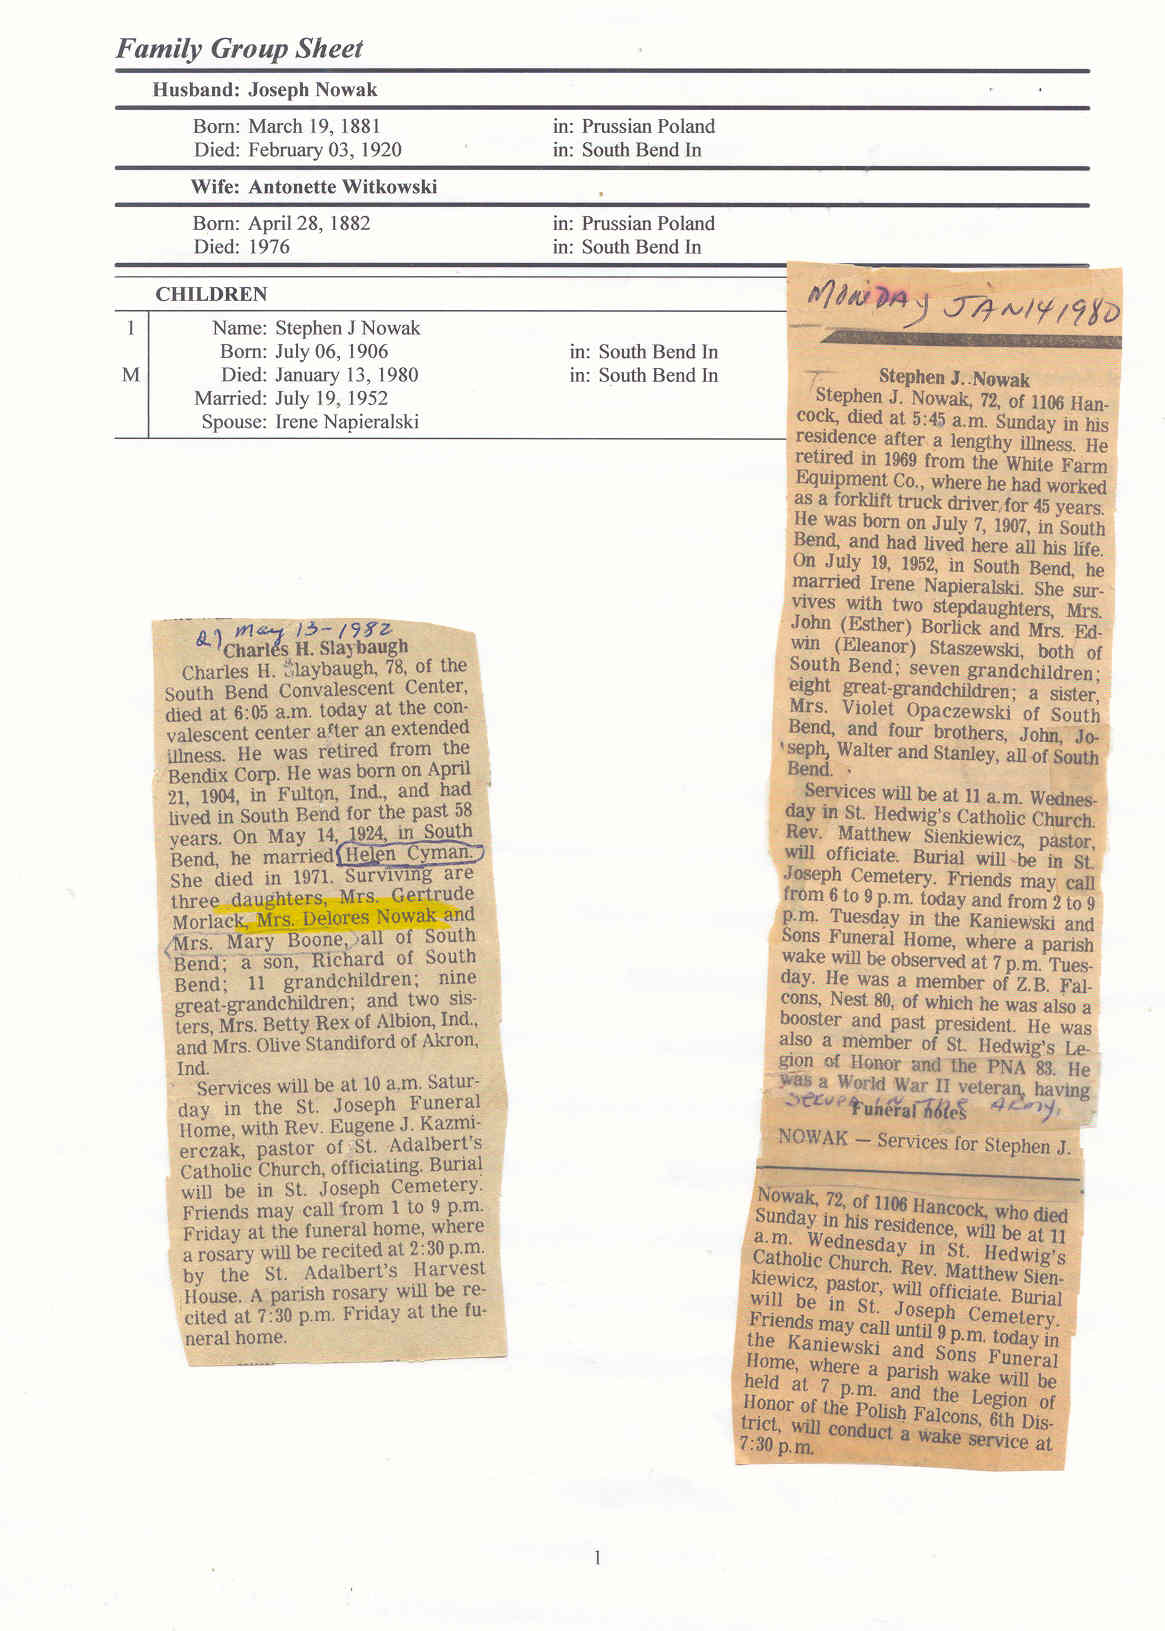 Family Group Sheet
Husband: Joseph Nowak
Born: March 19, 1881 in: Prussian Poland
Died: February 03, 1920 in: South Bend In
Wife: Antonette Witkowski
Born: April 28, 1882 in: Prussian Poland
Died: 1976 in: South Bend In
CHILDREN
1 Name: Stephen J Nowak
Born: July 06, 1906 in: South Bend In
M Died: January 13, 1980 in: South Bend In
Married: July 19, 1952
Spouse: Irene Napieralski
MONDAY JAN 14 1980
Stephen J. Nowak
Stephen J. Nowak, 72, of 1106 Han-
cock, died at 5:45 a.m. Sunday in his
residence after a lengthy illness. He
retired in 1969 from the White Farm
Equipment Co., where he had worked
as a forklift truck driver for 45 years.
He was born on July 7, 1907, in South
Bend, and had lived here all his life.
On July 19, 1952, in South Bend, he
married Irene Napieralski. She sur-
vives with two stepdaughters, Mrs.
John (Esther) Borlick and Mrs. Ed-
win (Eleanor) Staszewski, both of
South Bend; seven grandchildren;
eight great-grandchildren; a sister,
Mrs. Violet Opaczewski of South
Bend, and four brothers, John, Jo-
seph, Walter and Stanley, all of South
Bend.
Services will be at 11 a.m. Wednes-
day in St. Hedwig's Catholic Church.
Rev. Matthew Sienkiewicz, pastor,
will officiate. Burial will be in St.
Joseph Cemetery. Friends may call
from 6 to 9 p.m. today and from 2 to 9
p.m. Tuesday in the Kaniewski and
Sons Funeral Home, where a parish
wake will be observed at 7 p.m. Tues-
day. He was a member of Z.B. Fal-
cons, Nest 80, of which he was also a
booster and past president. He was
also a member of St. Hedwig's Le-
gion of Honor and the PNA 83. He
was a World War II veteran, having
served in the Army.
Funeral notes
NOWAK — Services for Stephen J.
Nowak, 72, of 1106 Hancock, who died
Sunday in his residence, will be at 11
a.m. Wednesday in St. Hedwig's
Catholic Church. Rev. Matthew Sien-
kiewicz, pastor, will officiate. Burial
will be in St. Joseph Cemetery.
Friends may call until 9 p.m. today in
the Kaniewski and Sons Funeral
Home, where a parish wake will be
held at 7 p.m. and the Legion of
Honor of the Polish Falcons, 6th Dis-
trict, will conduct a wake service at
7:30 p.m.
May 13-1982
Charles H. Slaybaugh
Charles H. Slaybaugh, 78, of the
South Bend Convalescent Center,
died at 6:05 a.m. today at the con-
valescent center after an extended
illness. He was retired from the
Bendix Corp. He was born on April
21, 1904, in Fulton, Ind., and had
lived in South Bend for the past 58
years. On May 14, 1924, in South
Bend, he married Helen Cyman.
She died in 1971. Surviving are
three daughters, Mrs. Gertrude
Morlack, Mrs. Delores Nowak and
Mrs. Mary Boone, all of South
Bend; a son, Richard of South
Bend; 11 grandchildren; nine
great-grandchildren; and two sis-
ters, Mrs. Betty Rex of Albion, Ind.,
and Mrs. Olive Standiford of Akron,
Ind.
Services will be at 10 a.m. Satur-
day in the St. Joseph Funeral
Home, with Rev. Eugene J. Kazmi-
erczak, pastor of St. Adalbert's
Catholic Church, officiating. Burial
will be in St. Joseph Cemetery.
Friends may call from 1 to 9 p.m.
Friday at the funeral home, where
a rosary will be recited at 2:30 p.m.
by the St. Adalbert's Harvest
House. A parish rosary will be re-
cited at 7:30 p.m. Friday at the fu-
neral home.
1